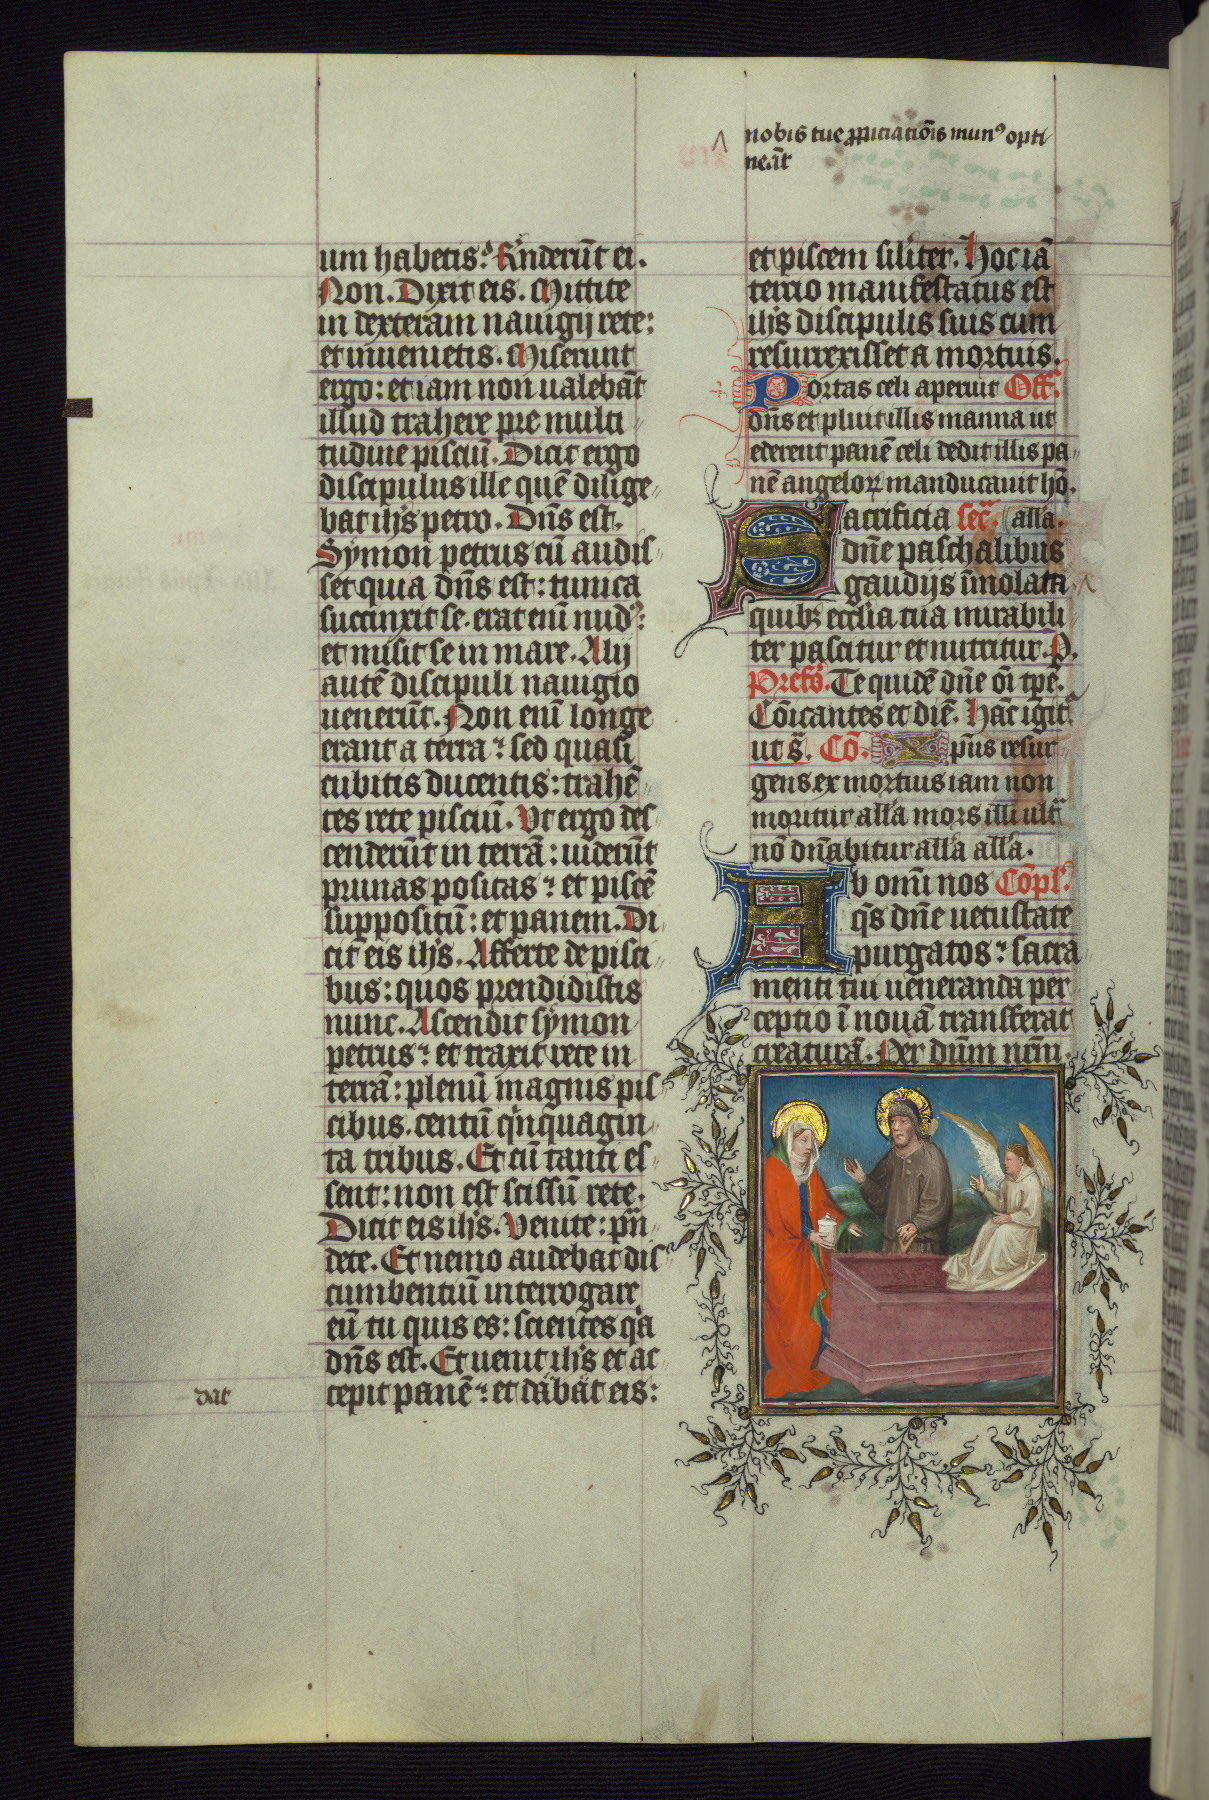 nobis tue ꝓpiciatiōis munꝰ opti
neāt
um habetis? Rn̄derūt ei.
Non. Dixit eis. Mittite
in dexteram nauigij rete:
et inuenietis. Miserunt
ergo: et iam non ualebāt
illud trahere pre multi
tudine pisciū. Dicit ergo
discipulus ille quē dilige
bat ihs̄ petro. Dn̄s est.
Symon petrus cū audis
set quia dn̄s est: tunica
succinxit se. erat enī nudꝰ:
et misit se in mare. Alij
autē discipuli nauigio
uenerūt. Non enī longe
erant a terra: sed quasi
cubitis ducentis: trahē
tes rete pisciū. Vt ergo des
cenderūt in terrā: uiderūt
prunas positas: et piscē
suppositū: et panem. Di
cit eis ihs̄. Afferte de pisci
bus: quos prendidistis
nunc. Ascendit symon
petrus: et traxit rete in
terrā: plenū magnis pis
cibus. centū qinquagin
ta tribus. Et cū tanti es
sent: non est scissū rete.
Dicit eis ihs̄. Venite: prn̄
dete. Et nemo audebat dis
cumbentiū interrogare
eū tu quis es: scientes qa
dn̄s est. Et uenit ihs̄ et ac
cepit panē: et dabat eis:
dat
et piscem siliter. Hoc iā
tercio manifestatus est
ihs̄ discipulis suis cum
resurrexisset a mortuis.
Portas celi aperuit Off̄.
dn̄s et pluit illis manna ut
ederent panē celi dedit illis pa
nē angelorꝝ manducauit hō.
Sacrificia sec̄. alla.
dn̄e paschalibus
gaudijs īmolata
quibꝫ eccl̄ia tua mirabili
ter pascitur et nutritur. P.
Prefō. Te quidē dn̄e oī tp̄e.
Cōicantes et diē. Hāc igit̄
ut s̄. Cō. Xp̄us resur
gens ex mortuis iam non
moritur all̄a mors illi ult̄
nō dn̄abitur all̄a all̄a.
Ab omī nos Cōpl̄.
qs̄ dn̄e uetustate
purgatos: sacra
menti tui ueneranda per
ceptio ī nouā transferat
creaturā. Per dūm nr̄m.